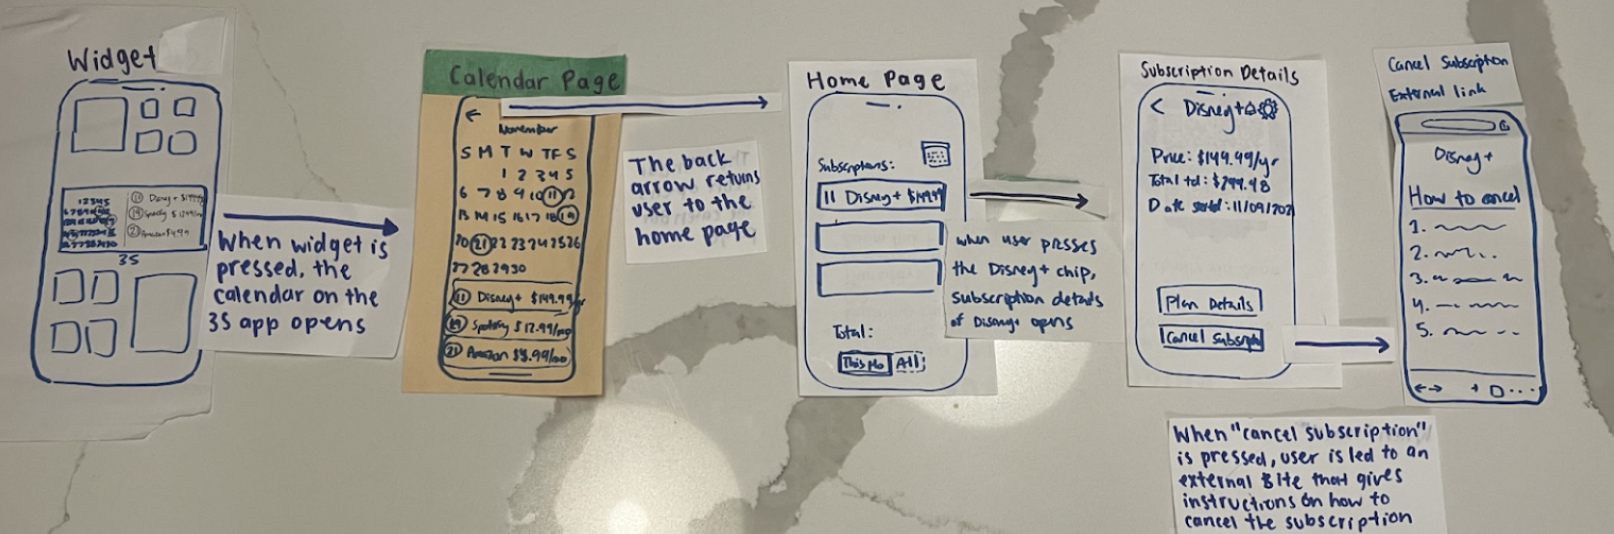 Widget
12345
Disney+
Spotify
Amazon
3S
When widget is
pressed, the
calendar on the
3S app opens
Calendar Page
←
November
S M T W T F S
1 2 3 4 5
6 7 8 9 10 11 12
13 14 15 16 17 18 19
20 21 22 23 24 25 26
27 28 29 30
11 Disney+ $149.99/yr
19 Spotify $12.99/mo
21 Amazon
The back
arrow returns
user to the
home page
Home Page
Subscriptions:
11 Disney+ $149.99
Total:
This Mo All
when user presses
the Disney+ chip,
subscription details
of Disney+ opens
Subscription Details
< Disney+
Price: $149.99/yr
Total td: $299.98
Date 11/09/202
Plan Details
Cancel Subscript
Cancel Subscription
External link
Disney+
How to cancel
1.
2.
3.
4.
5.
When "cancel subscription"
is pressed, user is led to an
external site that gives
instructions on how to
cancel the subscription